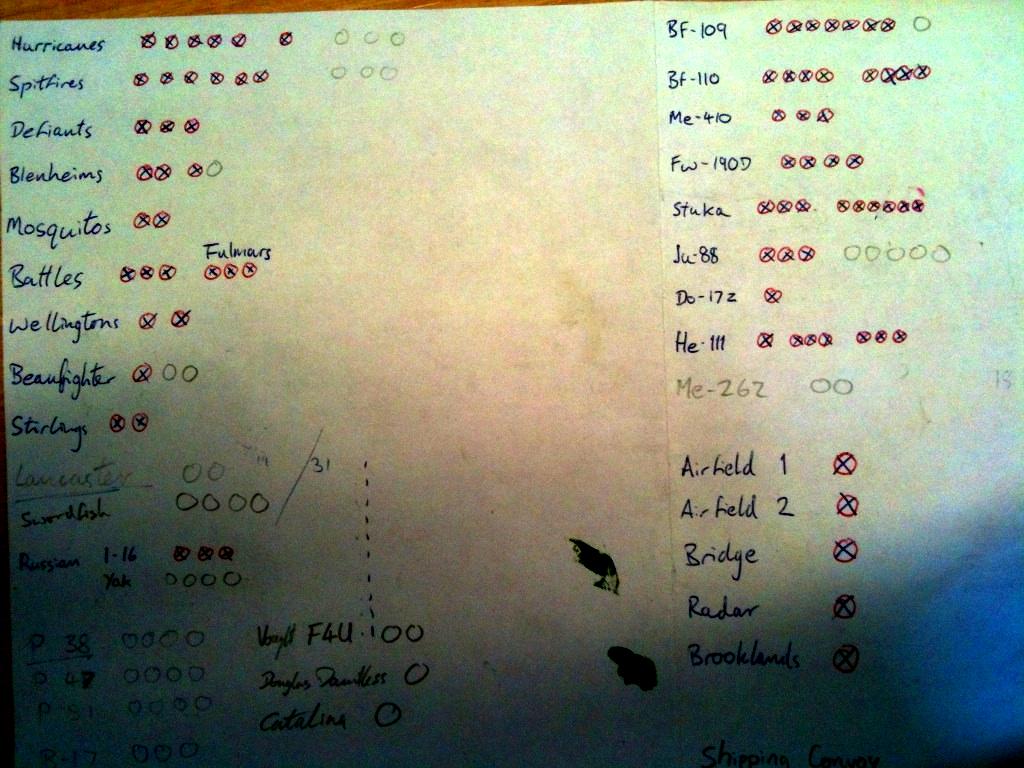 Hurricanes
Spitfires
Defiants
Blenheims
Mosquitos
Fulmars
Battles
Wellingtons
Beaufighter
Stirlings
/31
Lancaster
Swordfish
Russian I-16
Yak
P 38
P 47
P 51
B-17
Vought F4U
Douglas Dauntless
Catalina
BF-109
Bf-110
Me-410
Fw-190D
Stuka
Ju-88
Do-17z
He-111
Me-262
18
Airfield 1
Airfield 2
Bridge
Radar
Brooklands
Shipping Convoy